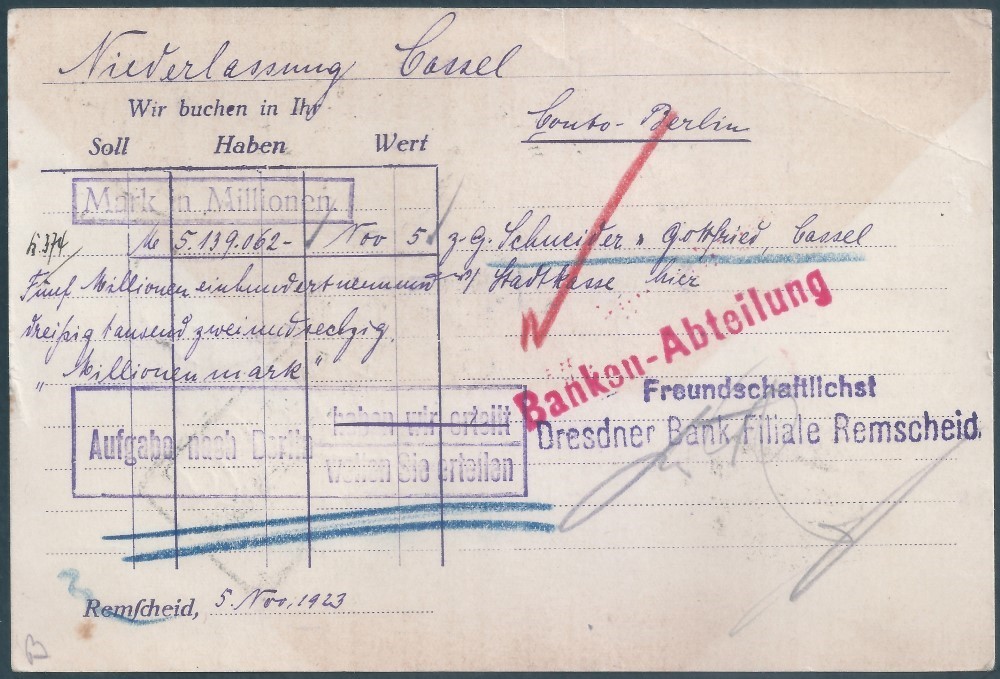 Niederlassung Cassel
Wir buchen in Ihr
Conto-Berlin
Soll Haben Wert
Mark in Millionen
M 5.139.062- Nov 5 z. G. Schneider u Gottfried, Cassel
Fünf Millionen einhundertneunund Stadtkasse hier
dreißig tausend zweiundsechzig
" Millionenmark "
Banken-Abteilung
Freundschaftlichst
Dresdner Bank Filiale Remscheid.
Aufgabe nach Berlin
haben wir erteilt
wollen Sie erteilen
Remscheid, 5. Nov. 1923
B